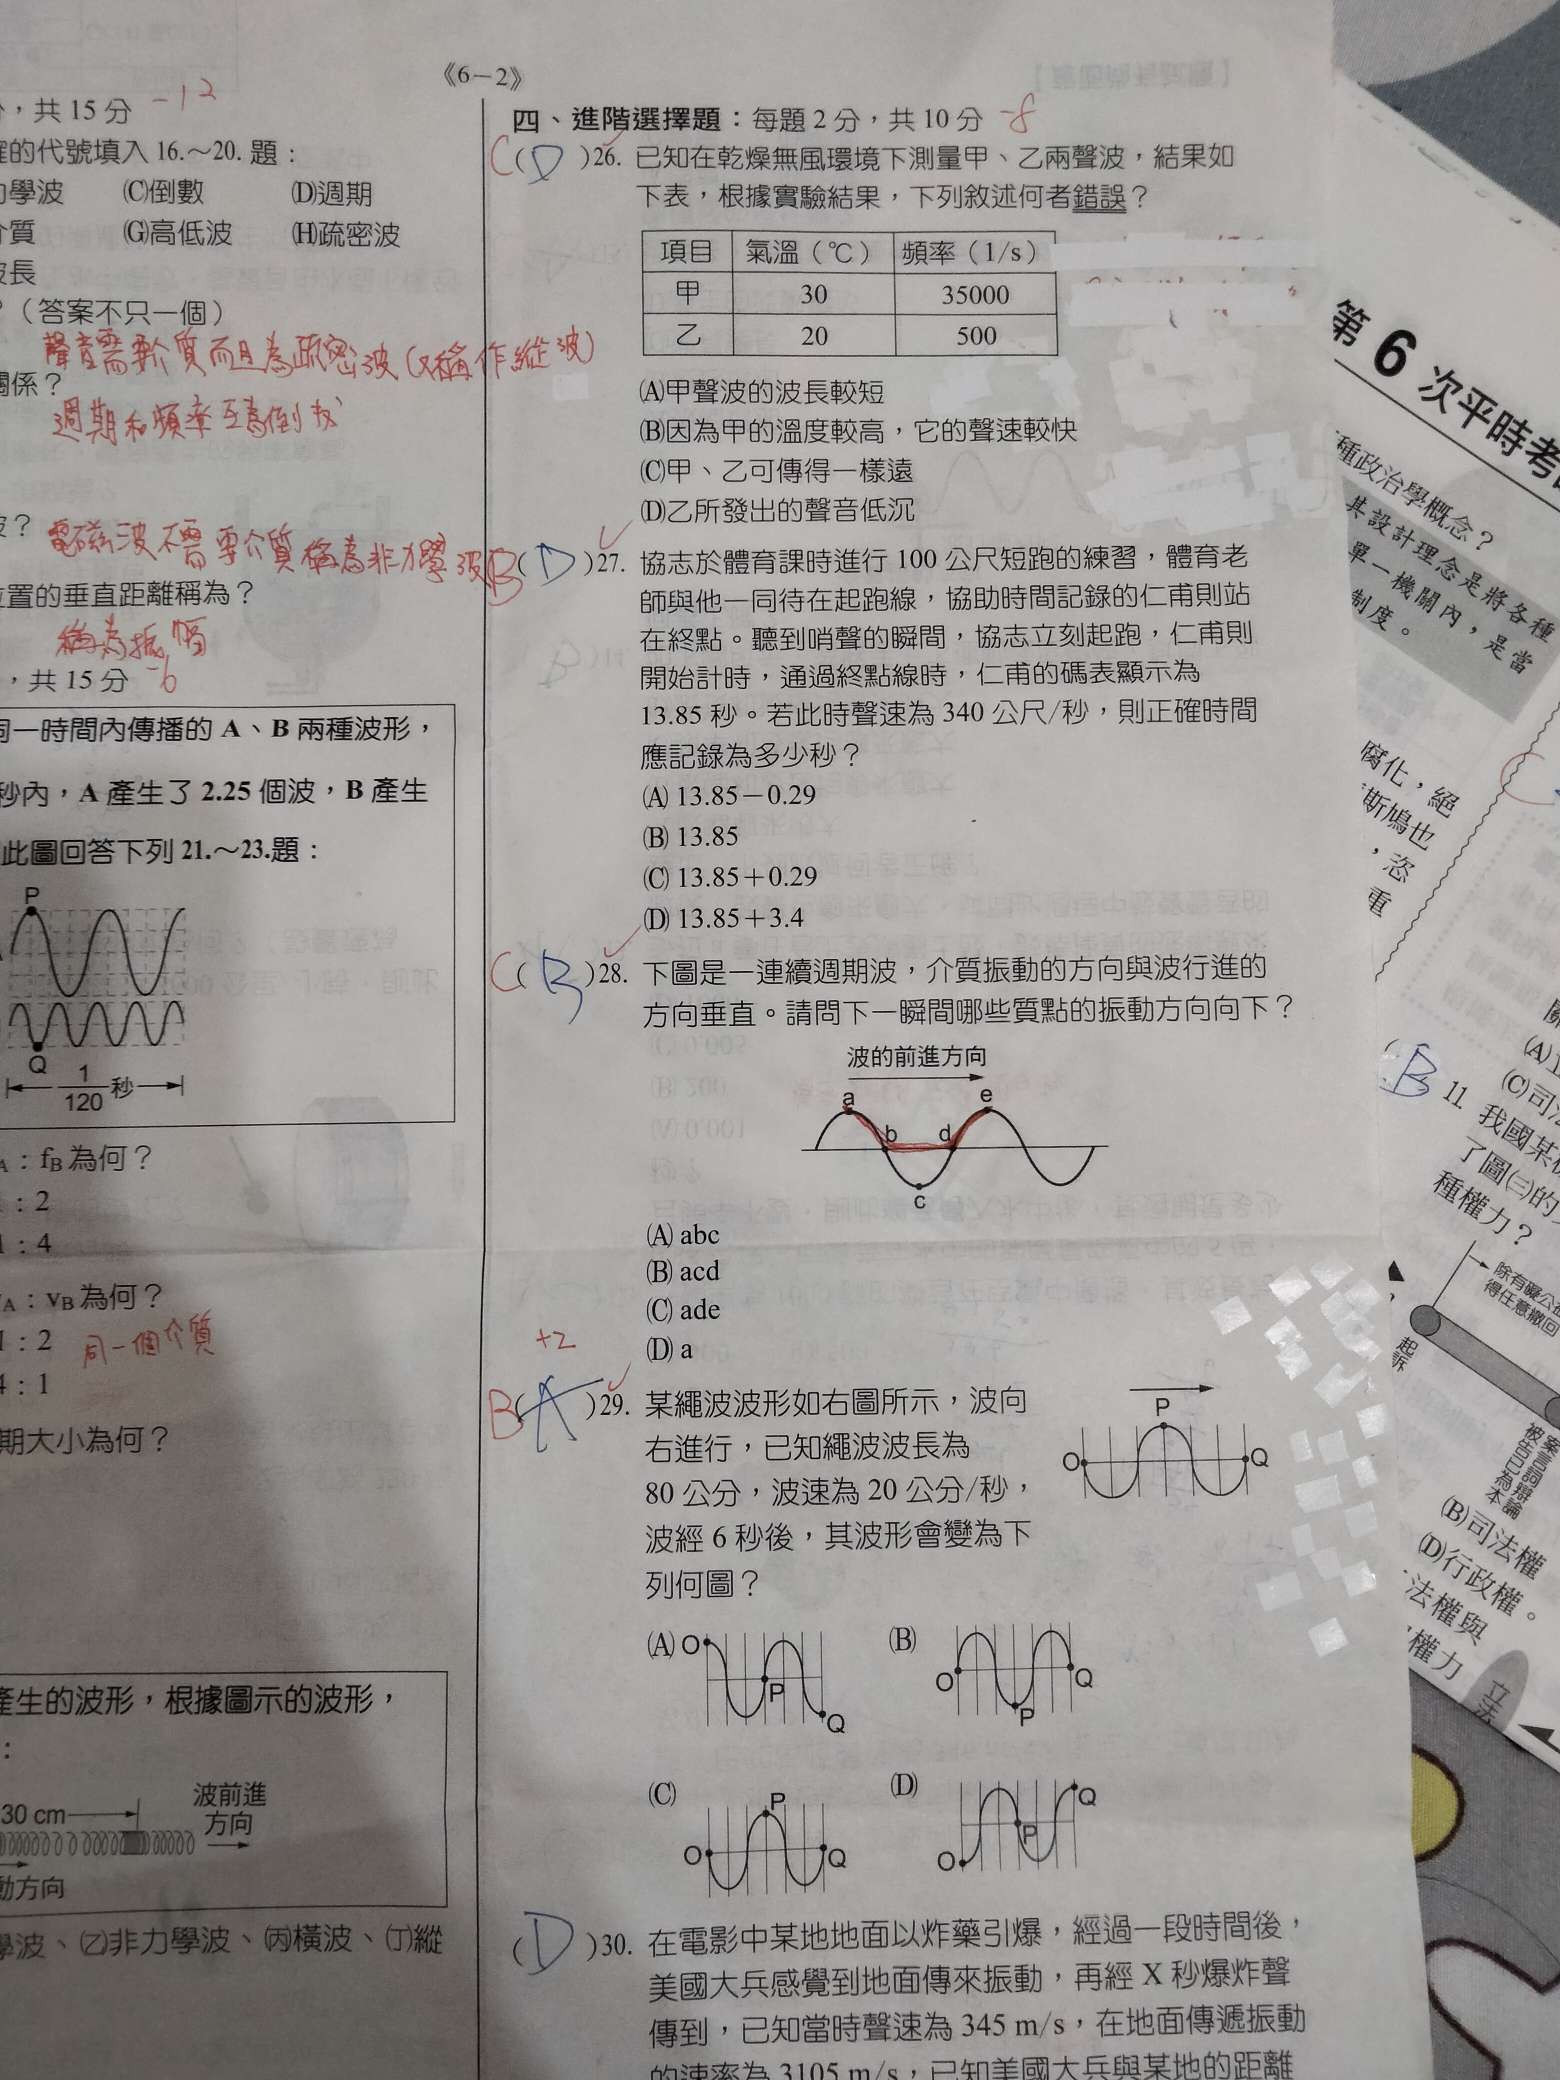 《6－2》
，共 15 分 -12
的代號填入 16.～20. 題：
學波 (C)倒數 (D)週期
質 (G)高低波 (H)疏密波
長
（答案不只一個）
聲音需要介質而且為疏密波(又稱作縱波)
關係？
週期和頻率互為倒數
？
電磁波不需要介質稱為非力學波
位置的垂直距離稱為？
稱為振幅
，共 15 分 -6
同一時間內傳播的 A、B 兩種波形，
秒內，A 產生了 2.25 個波，B 產生
此圖回答下列 21.～23.題：
P
Q
1/120 秒
：fB 為何？
：2
：4
：vB 為何？
1：2 同一個介質
4：1
期大小為何？
產生的波形，根據圖示的波形，
：
30 cm
波前進
方向
動方向
學波、(乙)非力學波、(丙)橫波、(丁)縱
四、進階選擇題：每題 2 分，共 10 分 -8
C( D )26. 已知在乾燥無風環境下測量甲、乙兩聲波，結果如
下表，根據實驗結果，下列敘述何者錯誤？
項目 氣溫（℃） 頻率（1/s）
甲 30 35000
乙 20 500
(A)甲聲波的波長較短
(B)因為甲的溫度較高，它的聲速較快
(C)甲、乙可傳得一樣遠
(D)乙所發出的聲音低沉
B( D )27. 協志於體育課時進行 100 公尺短跑的練習，體育老
師與他一同待在起跑線，協助時間記錄的仁甫則站
在終點。聽到哨聲的瞬間，協志立刻起跑，仁甫則
開始計時，通過終點線時，仁甫的碼表顯示為
13.85 秒。若此時聲速為 340 公尺/秒，則正確時間
應記錄為多少秒？
(A) 13.85－0.29
(B) 13.85
(C) 13.85＋0.29
(D) 13.85＋3.4
C( B )28. 下圖是一連續週期波，介質振動的方向與波行進的
方向垂直。請問下一瞬間哪些質點的振動方向向下？
波的前進方向
a
e
b
d
c
(A) abc
(B) acd
(C) ade
(D) a
+2
B( A )29. 某繩波波形如右圖所示，波向
右進行，已知繩波波長為
80 公分，波速為 20 公分/秒，
波經 6 秒後，其波形會變為下
列何圖？
P
O
Q
(A) O P Q
(B) O P Q
(C) O P Q
(D) O P Q
( D )30. 在電影中某地地面以炸藥引爆，經過一段時間後，
美國大兵感覺到地面傳來振動，再經 X 秒爆炸聲
傳到，已知當時聲速為 345 m/s，在地面傳遞振動
的速率為 3105 m/s，已知美國大兵與某地的距離
第 6 次平時考
種政治學概念？
其設計理念是將各種
單一機關內，是當
制度。
腐化，絕
斯鳩也
，恣
重
(A)
(C)司
B 11. 我國某
了圖(三)的
種權力？
除有礙公
得任意撤回
起訴
案言詞辯論
被告已為本
(B)司法權
(D)行政權。
法權與
權力
立法